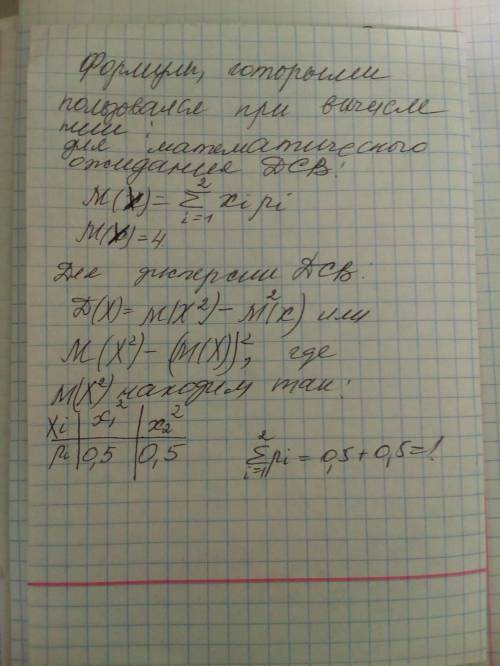 Формулы, которыми
пользовался при вычисле
нии:
для математического
ожидания ДСВ:
M(X) = ∑ᵢ₌₁² xi pi
M(X) = 4
Для дисперсии ДСВ:
D(X) = M(X²) − M²(x) или
M(X²) − (M(X))², где
M(X²) находим так:
Xi | x₁² | x₂²
pi | 0,5 | 0,5 ∑ᵢ₌₁² pi = 0,5 + 0,5 = 1